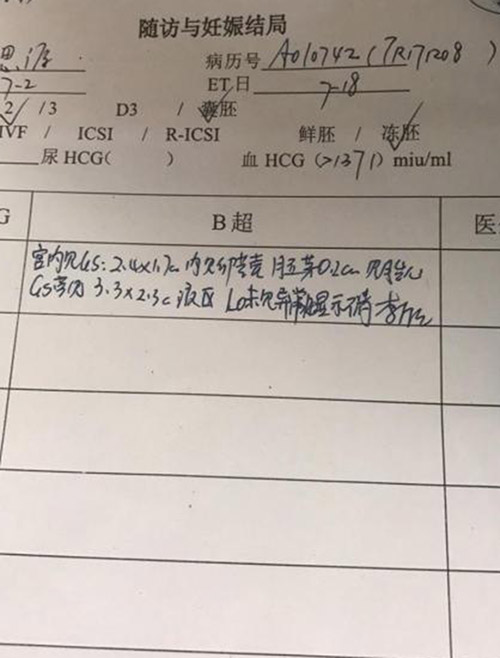 随访与妊娠结局
病历号 A010742 (TR171208 )
7-2 ET日 7-18
2 / 3 D3 / 囊胚
IVF / ICSI / R-ICSI 鲜胚 / 冻胚
尿 HCG( ) 血 HCG (>1371) miu/ml
G B 超 医
宫内见GS: 2.4x1.7cm 内见卵黄囊 胚芽0.2cm 见胎心
GS旁见 3.3x2.3c液区 Lo未见异常 显示